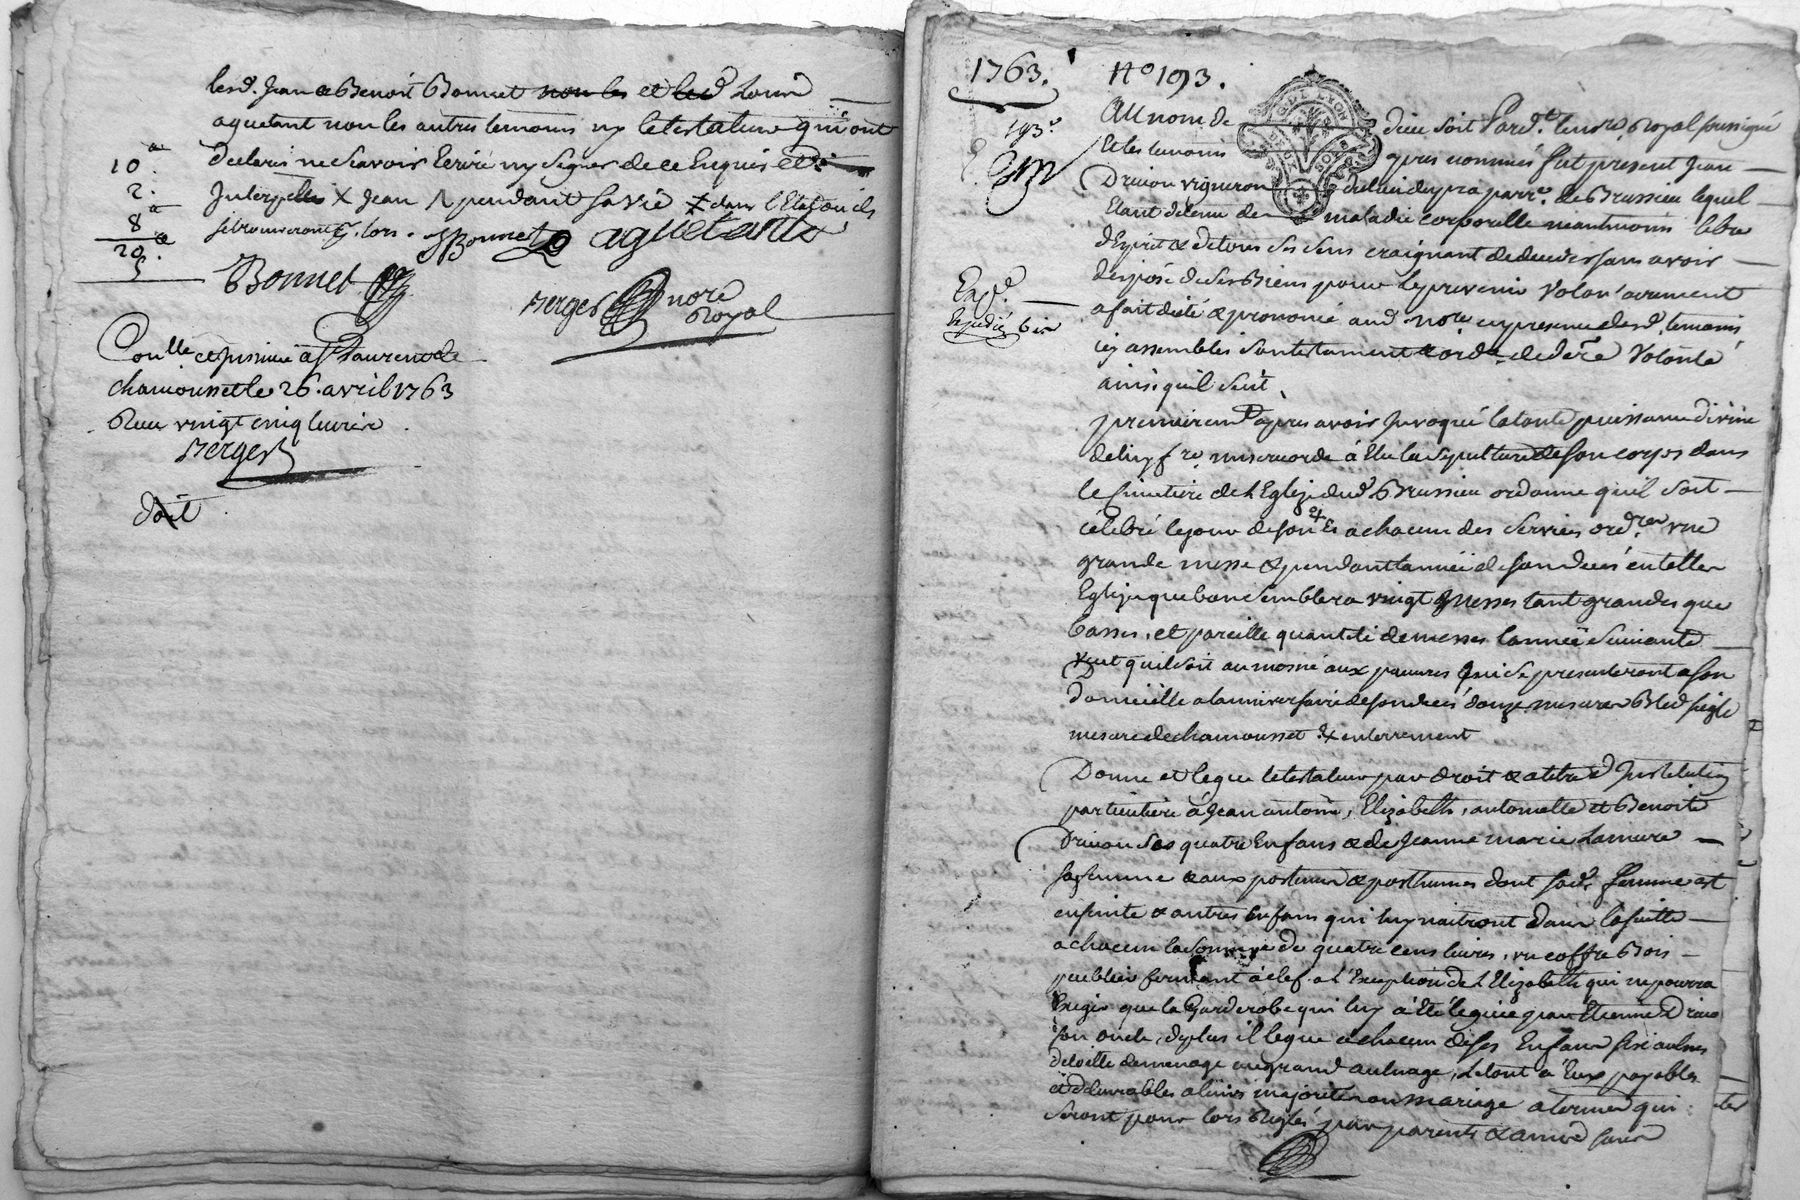 lesd. Jean & Benoit Bonnet non les et led Louis
aguetant non les autres temoins ny le testateur qui ont
declarés ne Scavoir Ecrire ny Signer de ce Enquis et
Interpellés X Jean /\ pendant Sa vie X dans l'Etat ou ils
se trouveront lors. JBonnet aguetant
10.
2.
8
20.
5
Bonnet
Berger nore
Royal
Conlle ce pnt reçu à St Laurent de
chamousset le 26. avril 1763
Reçu vingt cinq livres
Berger
doit
1763. N° 193.
193e
Exp.
Expedié bis
GDE LYON
Au nom de dieu Soit Pard. le nore Royal soussigné
Et les temoins apres nommés fut present Jean
Drivon vigneron de la parre. de Brussieu lequel
Etant detenu de maladie corporelle neantmoins libre
d'Esprit & de tous ses Sens craignant de deceder sans avoir
disposé de Ses Biens pour le prevenir Volontairement
a fait dicté & prononcé aud. nore. en presence desd. temoins
icy assemblés Son testament & ord. de dere Volonté
ainsi qu'il Suit
premierem.t apres avoir Invoqué la toute puissance divine
de luy fre. misericorde à Elu la Sepulture de Son corps dans
le Cimetiere de l'Eglize dud. Brussieu ordonne qu'il Soit
celebré le jour de Son X & a chacun des Services ordres une
grande messe & pendant l'année de son deces en telle
Eglize que bon Semblera vingt Messes tant grandes que
basses, et pareille quantité de messes l'année Suivante
Veut qu'il Soit aumosné aux pauvres qui Se presenteront a Son
Domicille a l'anniversaire de son deces douze mesures Bled Seigle
mesure de chamousset X enterrement
Donne et legue le testateur par droit & a titre d'Institution
particuliere à Jean antoine, Elizabeth, antoinette et Benoite
Drivon Ses quatre Enfans & de Jeanne marie Lamure
Sa femme & aux posthumes & posthumes dont Sad. femme est
enceinte & autres Enfans qui luy naitront dans la Suitte
a chacun la Somme de quatre cens livres, un coffre Bois
peuplier fermant à clef a l'Exception de l'Elizabeth qui ne pourra
Exiger que la Garderobe qui luy a Eté leguée par Etienne Drivon
Son oncle, de plus il legue a chacun de Ses Enfans Six aulnes
de toille de menage au grand aulnage, le tout à Eux payables
et delivrables a leurs majorités ou mariage a termes qui
Seront pour lors Reglés par parents & amis Sans